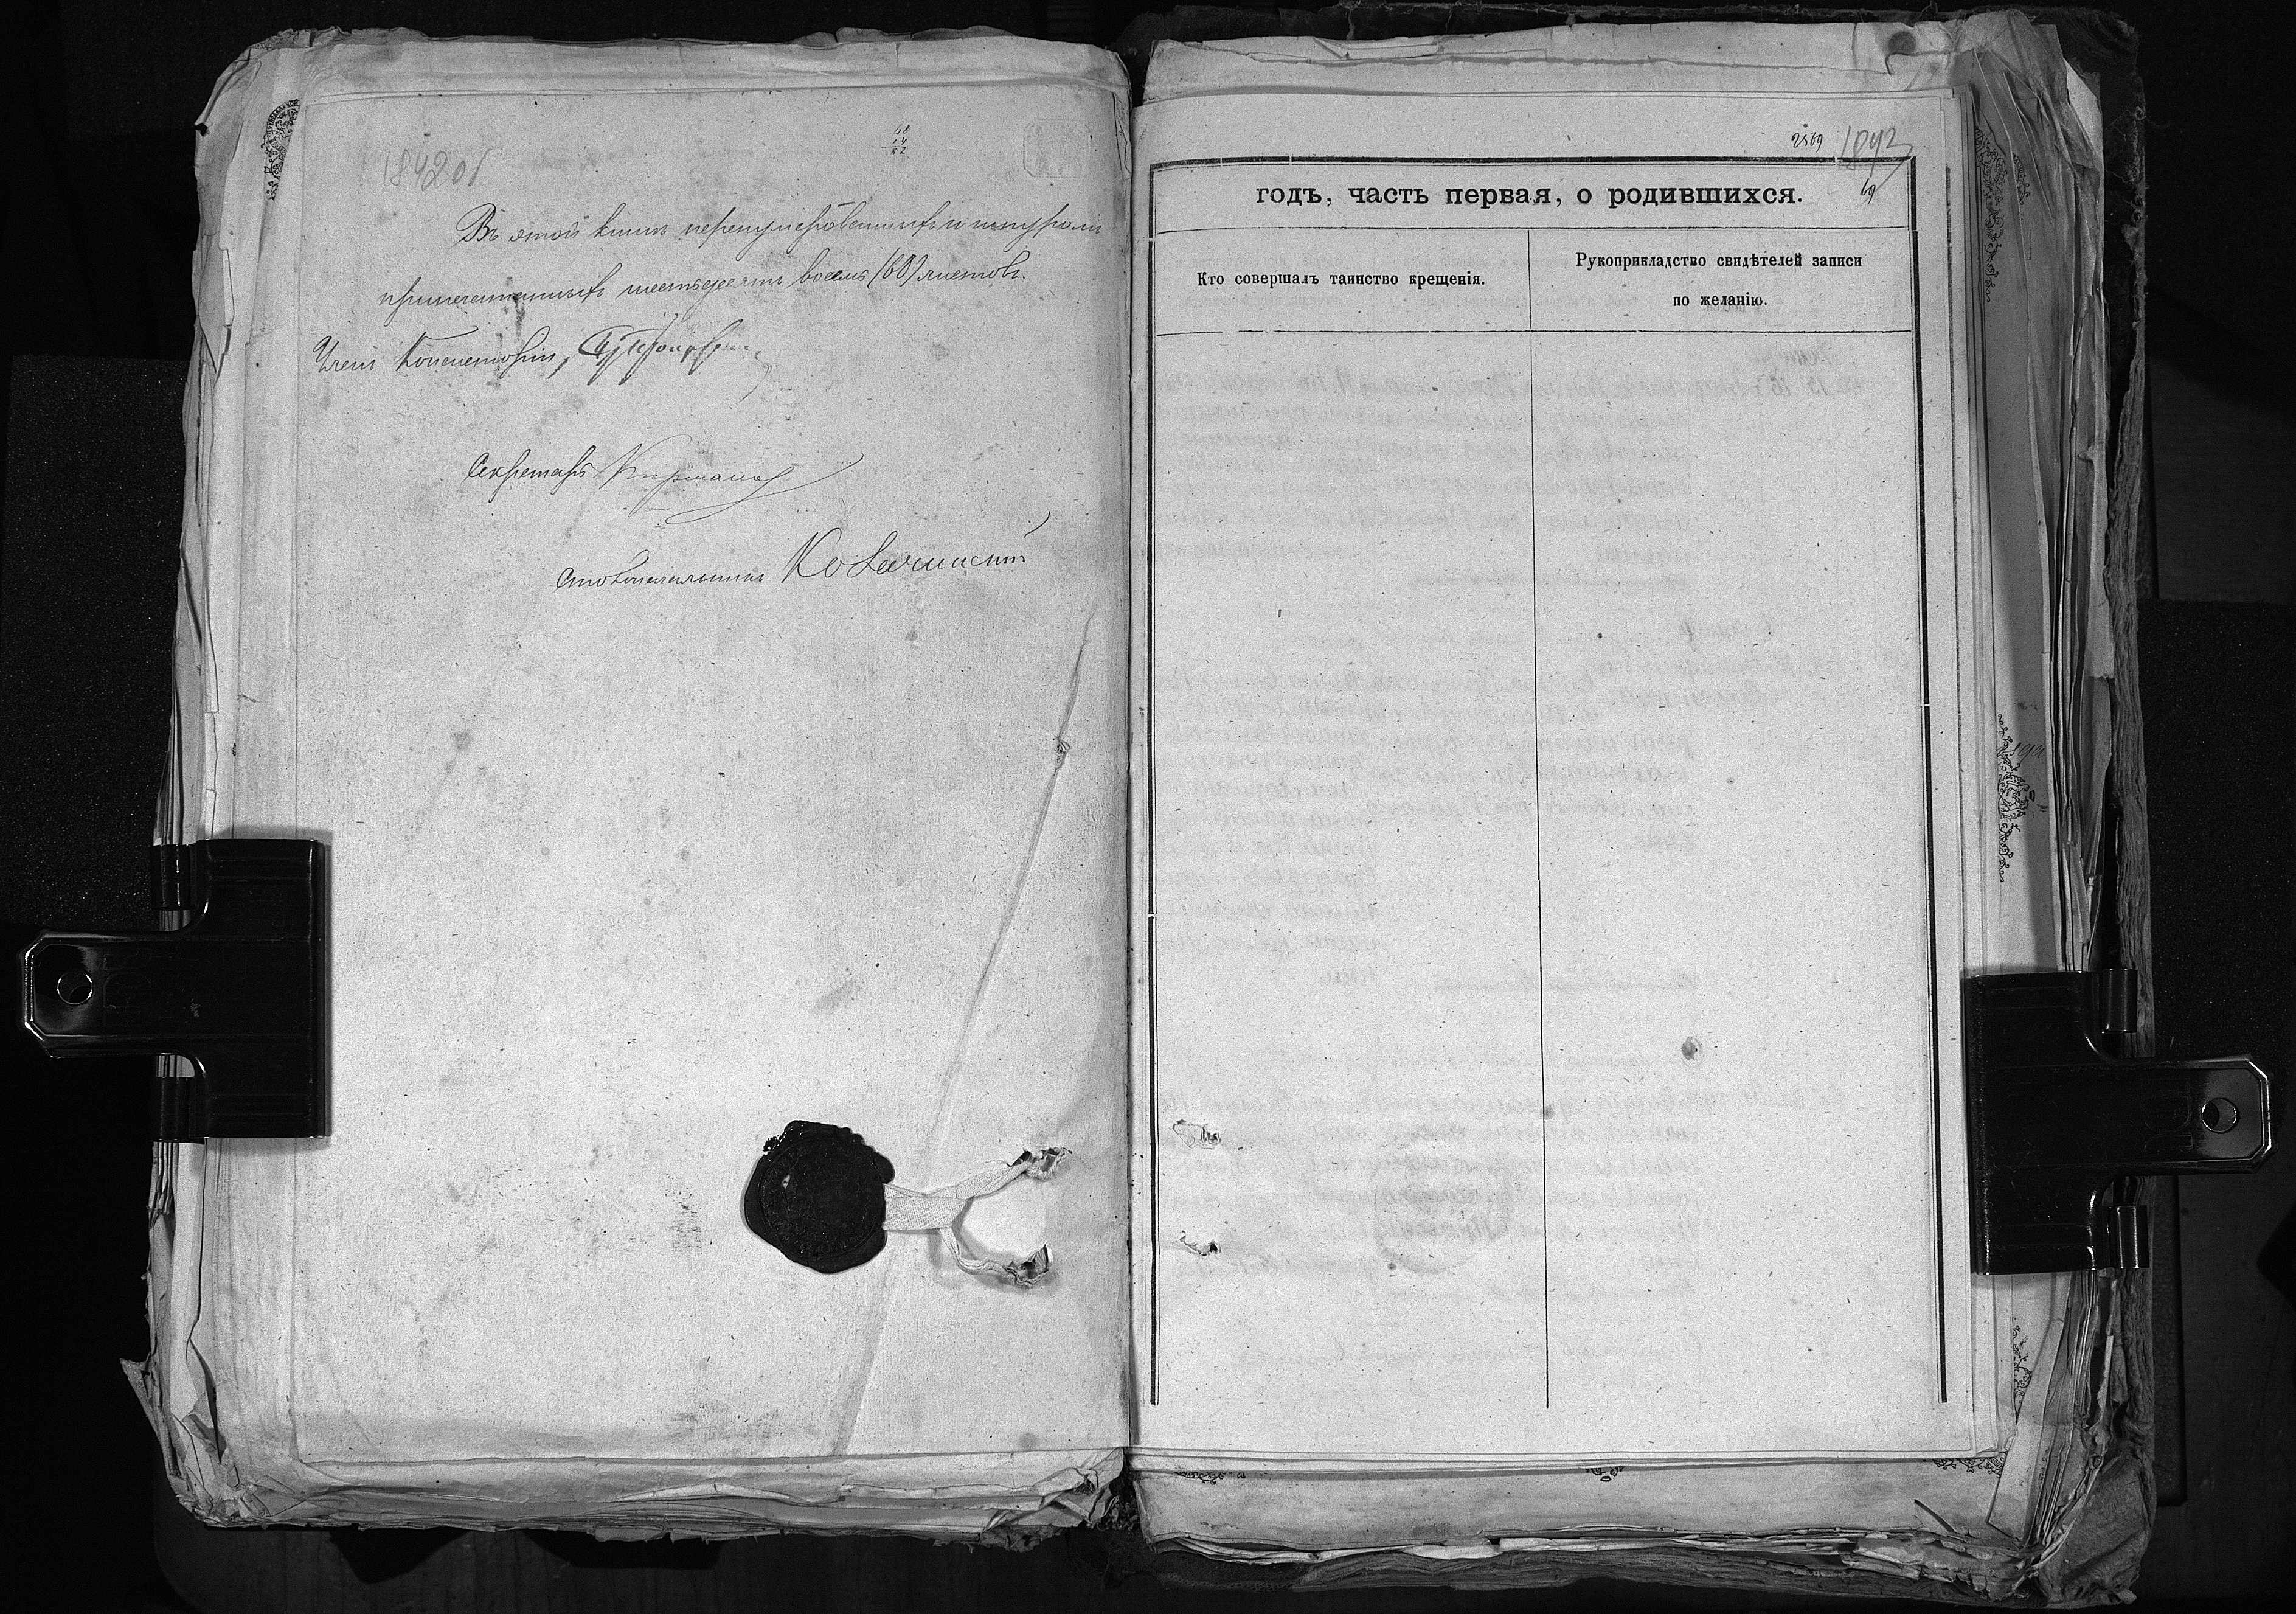 68
14
82
1842об
Въ этой книгѣ перенумерованныхъ и шнуромъ
припечатанныхъ шестьдесятъ восемь (68) листовъ.
Членъ Консисторіи,
Секретарь
Столоначальникъ
2569
1843
69
годъ, часть первая, о родившихся.
Кто совершалъ таинство крещенія.
Рукоприкладство свидѣтелей записи
по желанію.